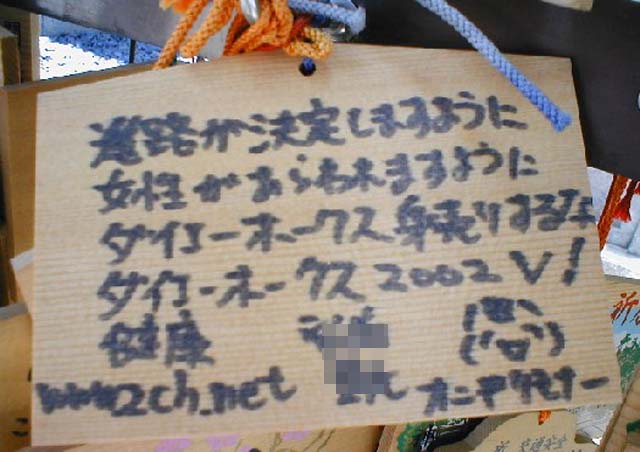 進路が決定しますように
女性があらわれますように
ダイエーホークス身売りするな
ダイエーホークス2002V!
健康
www2ch.net オニギリワッショー